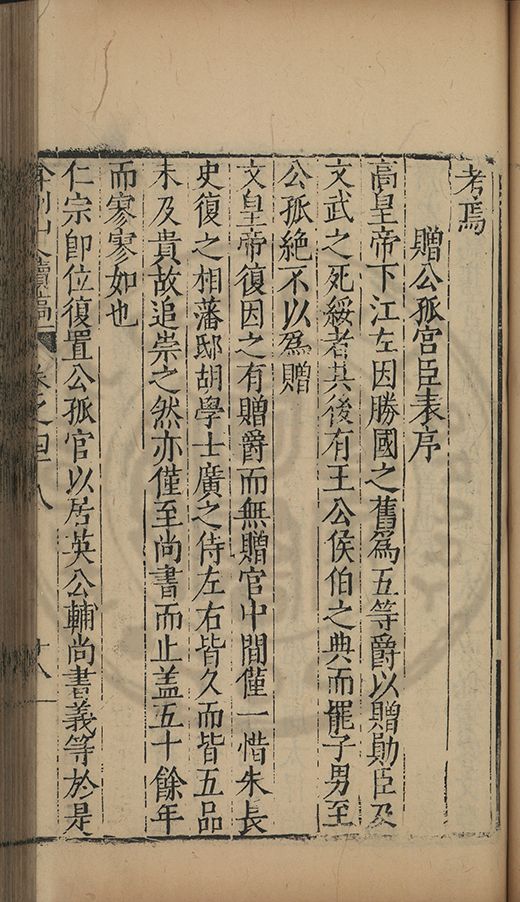 考焉
贈公孤官臣表序
高皇帝下江左因勝國之舊爲五等爵以贈勛臣及
文武之死綏者其後有王公侯伯之典而罷子男至
公孤絶不以爲贈
文皇帝復因之有贈爵而無贈官中間僅一惜朱長
史復之相藩邸胡學士廣之侍左右皆久而皆五品
未及貴故追崇之然亦僅至尚書而止盖五十餘年
而寥寥如也
仁宗卽位復置公孤官以居英公輔尚書義等於是
卷之四十八